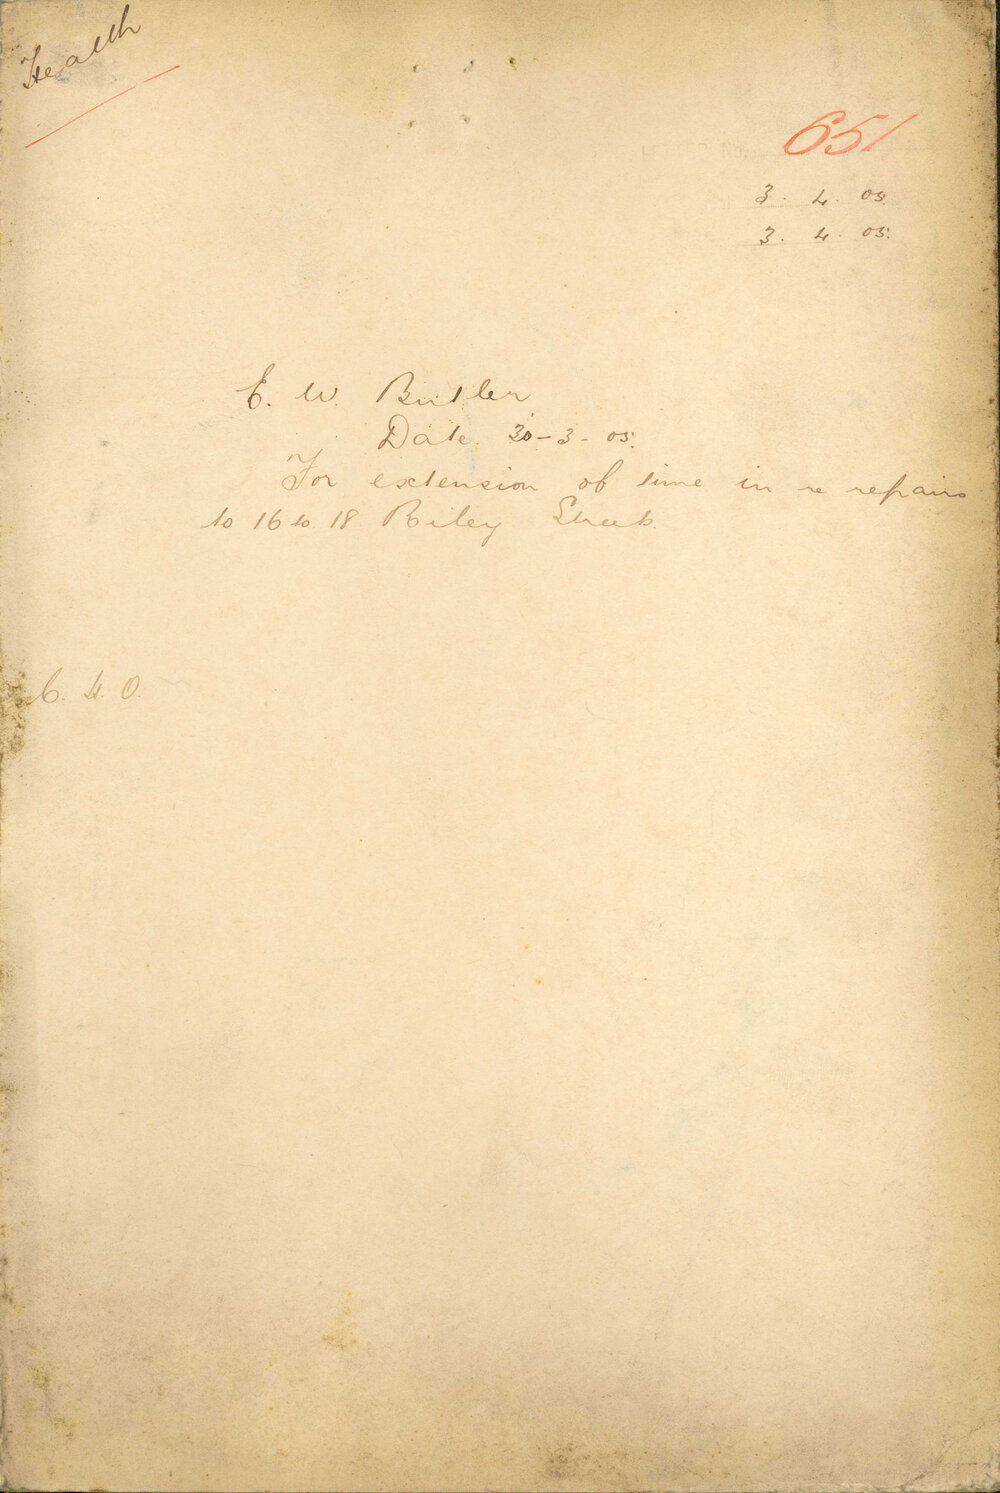 Health
651
3. 4. 05.
3. 4. 05.
E. W. Butler
Date 30-3-05.
For extension of time in re repairs
to 16 to 18 Riley Street.
C. H. O.